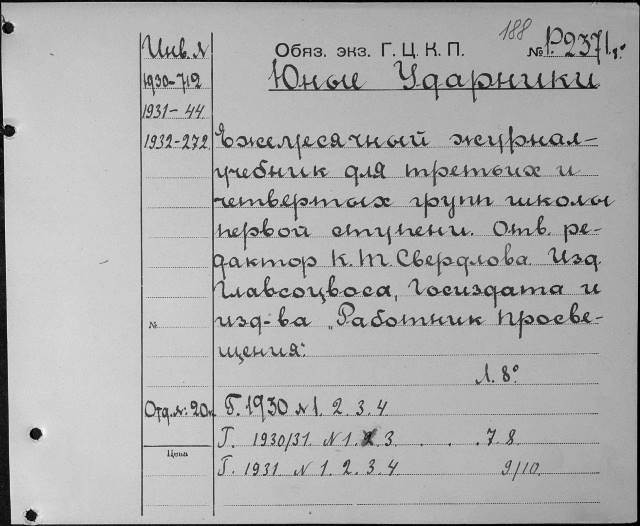 188
Инв. №
Обяз. экз. Г. Ц. К. П.
№ Р.2371. 8°
Юные Ударники
1930-712
1931-44
1932-272
Ежемесячный журнал-
учебник для третьих и
четвертых групп школы
первой ступени. Отв. ре-
дактор К.Т. Свердлова Изд.
Главсоцвоса, Госиздата и
№
изд-ва „Работник Просве-
щения".
Л. 8°
Отд. №: 20к.
Б. 1930 №1. 2. 3. 4
Г. 1930/31. №1. 3. . . .7.8.
Цена
Г. 1931. №1. 2. 3. 4 9/10.